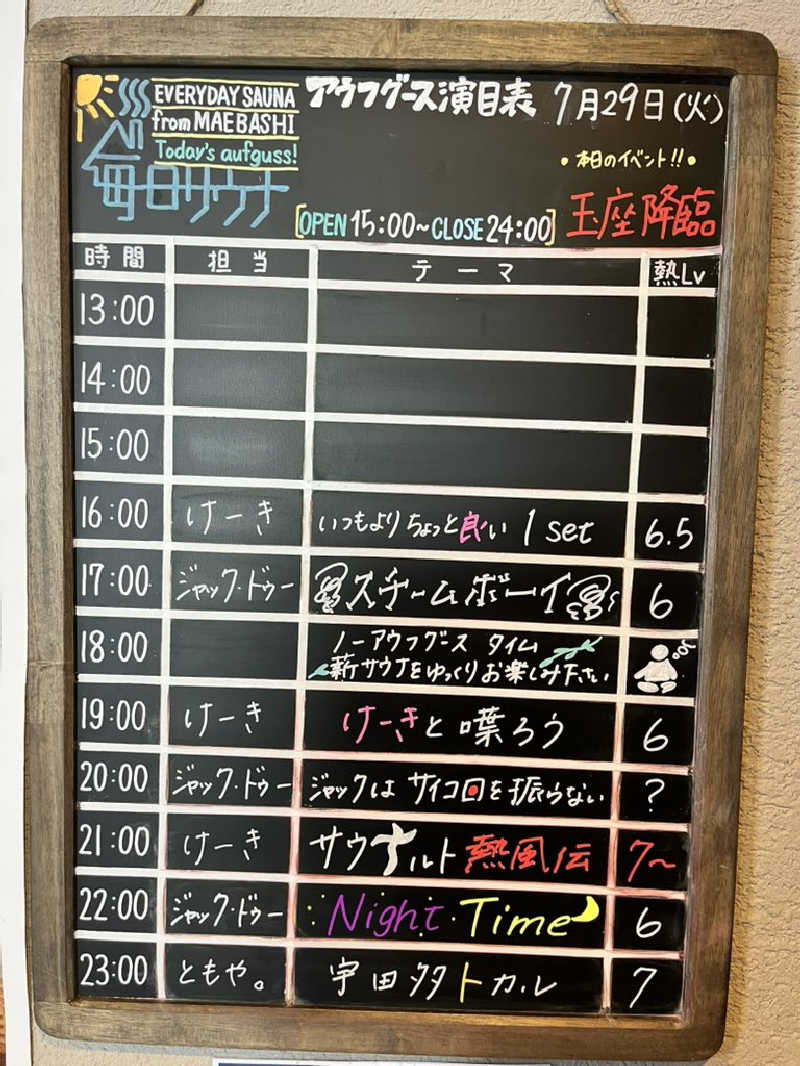 EVERYDAY SAUNA
from MAEBASHI
Today's aufguss!
毎日サウナ
アウフグース演目表 7月29日(火)
•本日のイベント!!•
玉座降臨
[OPEN 15:00~CLOSE 24:00]
時間 担当 テーマ 熱Lv
13:00
14:00
15:00
16:00 けーき いつもよりちょっと良い 1 set 6.5
17:00 ジャック・ドゥー スチームボーイ 6
18:00 ノーアウフグース タイム
薪サウナをゆっくりお楽しみ下さい
19:00 けーき けーきと喋ろう 6
20:00 ジャック・ドゥー ジャックは サイコロを振らない ?
21:00 けーき サウナルト 熱風伝 7~
22:00 ジャック・ドゥー Night Time 6
23:00 ともや。 宇田タタトカル 7